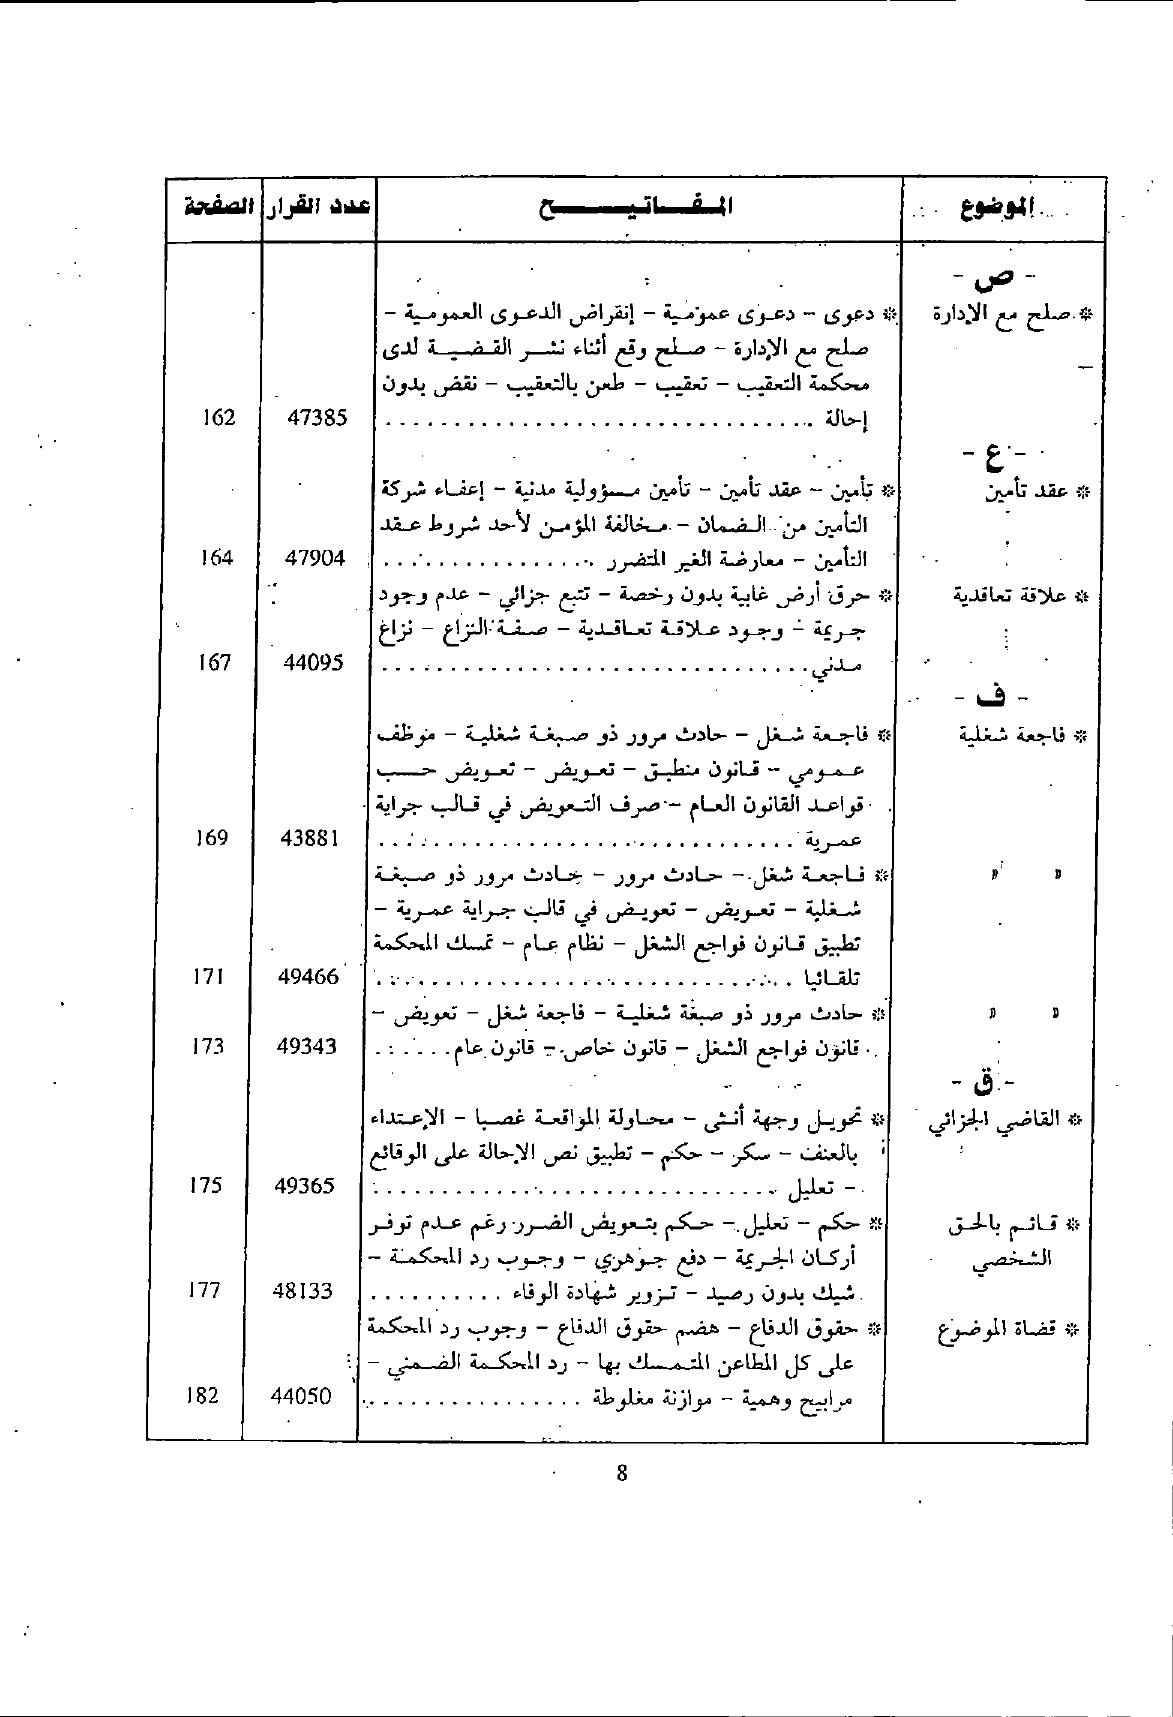 الموضوع المفاتيح عدد القرار الصفحة
- ص -
* صلح مع الإدارة * دعوى - دعوى عمومية - إنقراض الدعوى العمومية -
صلح مع الإدارة - صلح وقع أثناء نشر القضية لدى
محكمة التعقيب - تعقيب - طعن بالتعقيب - نقض بدون
إحالة ................................ 47385 162
- ع -
* عقد تأمين * تأمين - عقد تأمين - تأمين مسؤولية مدنية - إعفاء شركة
التأمين من الضمان - مخالفة المؤمن لأحد شروط عقد
التأمين - معارضة الغير المتضرر ................ 47904 164
* علاقة تعاقدية * حرق أرض غابية بدون رخصة - تتبع جزائي - عدم وجود
جريمة - وجود علاقة تعاقدية - صفة النزاع - نزاع
مدني................................ 44095 167
- ف -
* فاجعة شغلية * فاجعة شغل - حادث مرور ذو صبغة شغلية - موظف
عمومي - قانون منطبق - تعويض - تعويض حسب
قواعد القانون العام - صرف التعويض في قالب جراية
عمرية ............................... 43881 169
" " * فاجعة شغل - حادث مرور - حادث مرور ذو صبغة
شغلية - تعويض - تعويض في قالب جراية عمرية -
تطبيق قانون فواجع الشغل - نظام عام - تمسك المحكمة
تلقائيا ............................... 49466 171
" " * حادث مرور ذو صبغة شغلية - فاجعة شغل - تعويض -
قانون فواجع الشغل - قانون خاص - قانون عام...... 49343 173
- ق -
* القاضي الجزائي * تحويل وجهة أنثى - محاولة المواقعة غصبا - الإعتداء
بالعنف - سكر - حكم - تطبيق نص الإحالة على الوقائع
- تعليل .............................. 49365 175
* قائم بالحق * حكم - تعليل - حكم بتعويض الضرر رغم عدم توفر
الشخصي أركان الجريمة - دفع جوهري - وجوب رد المحكمة -
شيك بدون رصيد - تزوير شهادة الوفاء .......... 48133 177
* قضاة الموضوع * حقوق الدفاع - هضم حقوق الدفاع - وجوب رد المحكمة
على كل المطاعن المتمسك بها - رد المحكمة الضمني -
مرابيح وهمية - موازنة مغلوطة ................ 44050 182
8